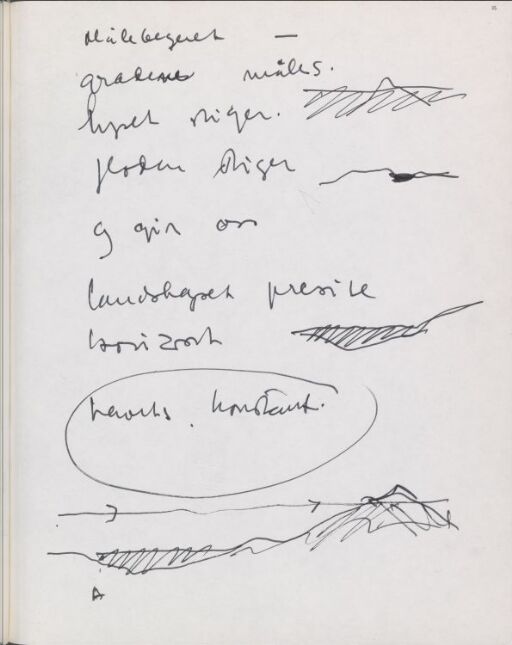 Målebegeret —
gradene måles.
lyset stiger.
floden stiger
og gir oss
landskapet presise
horisont
havets. konstant.
A